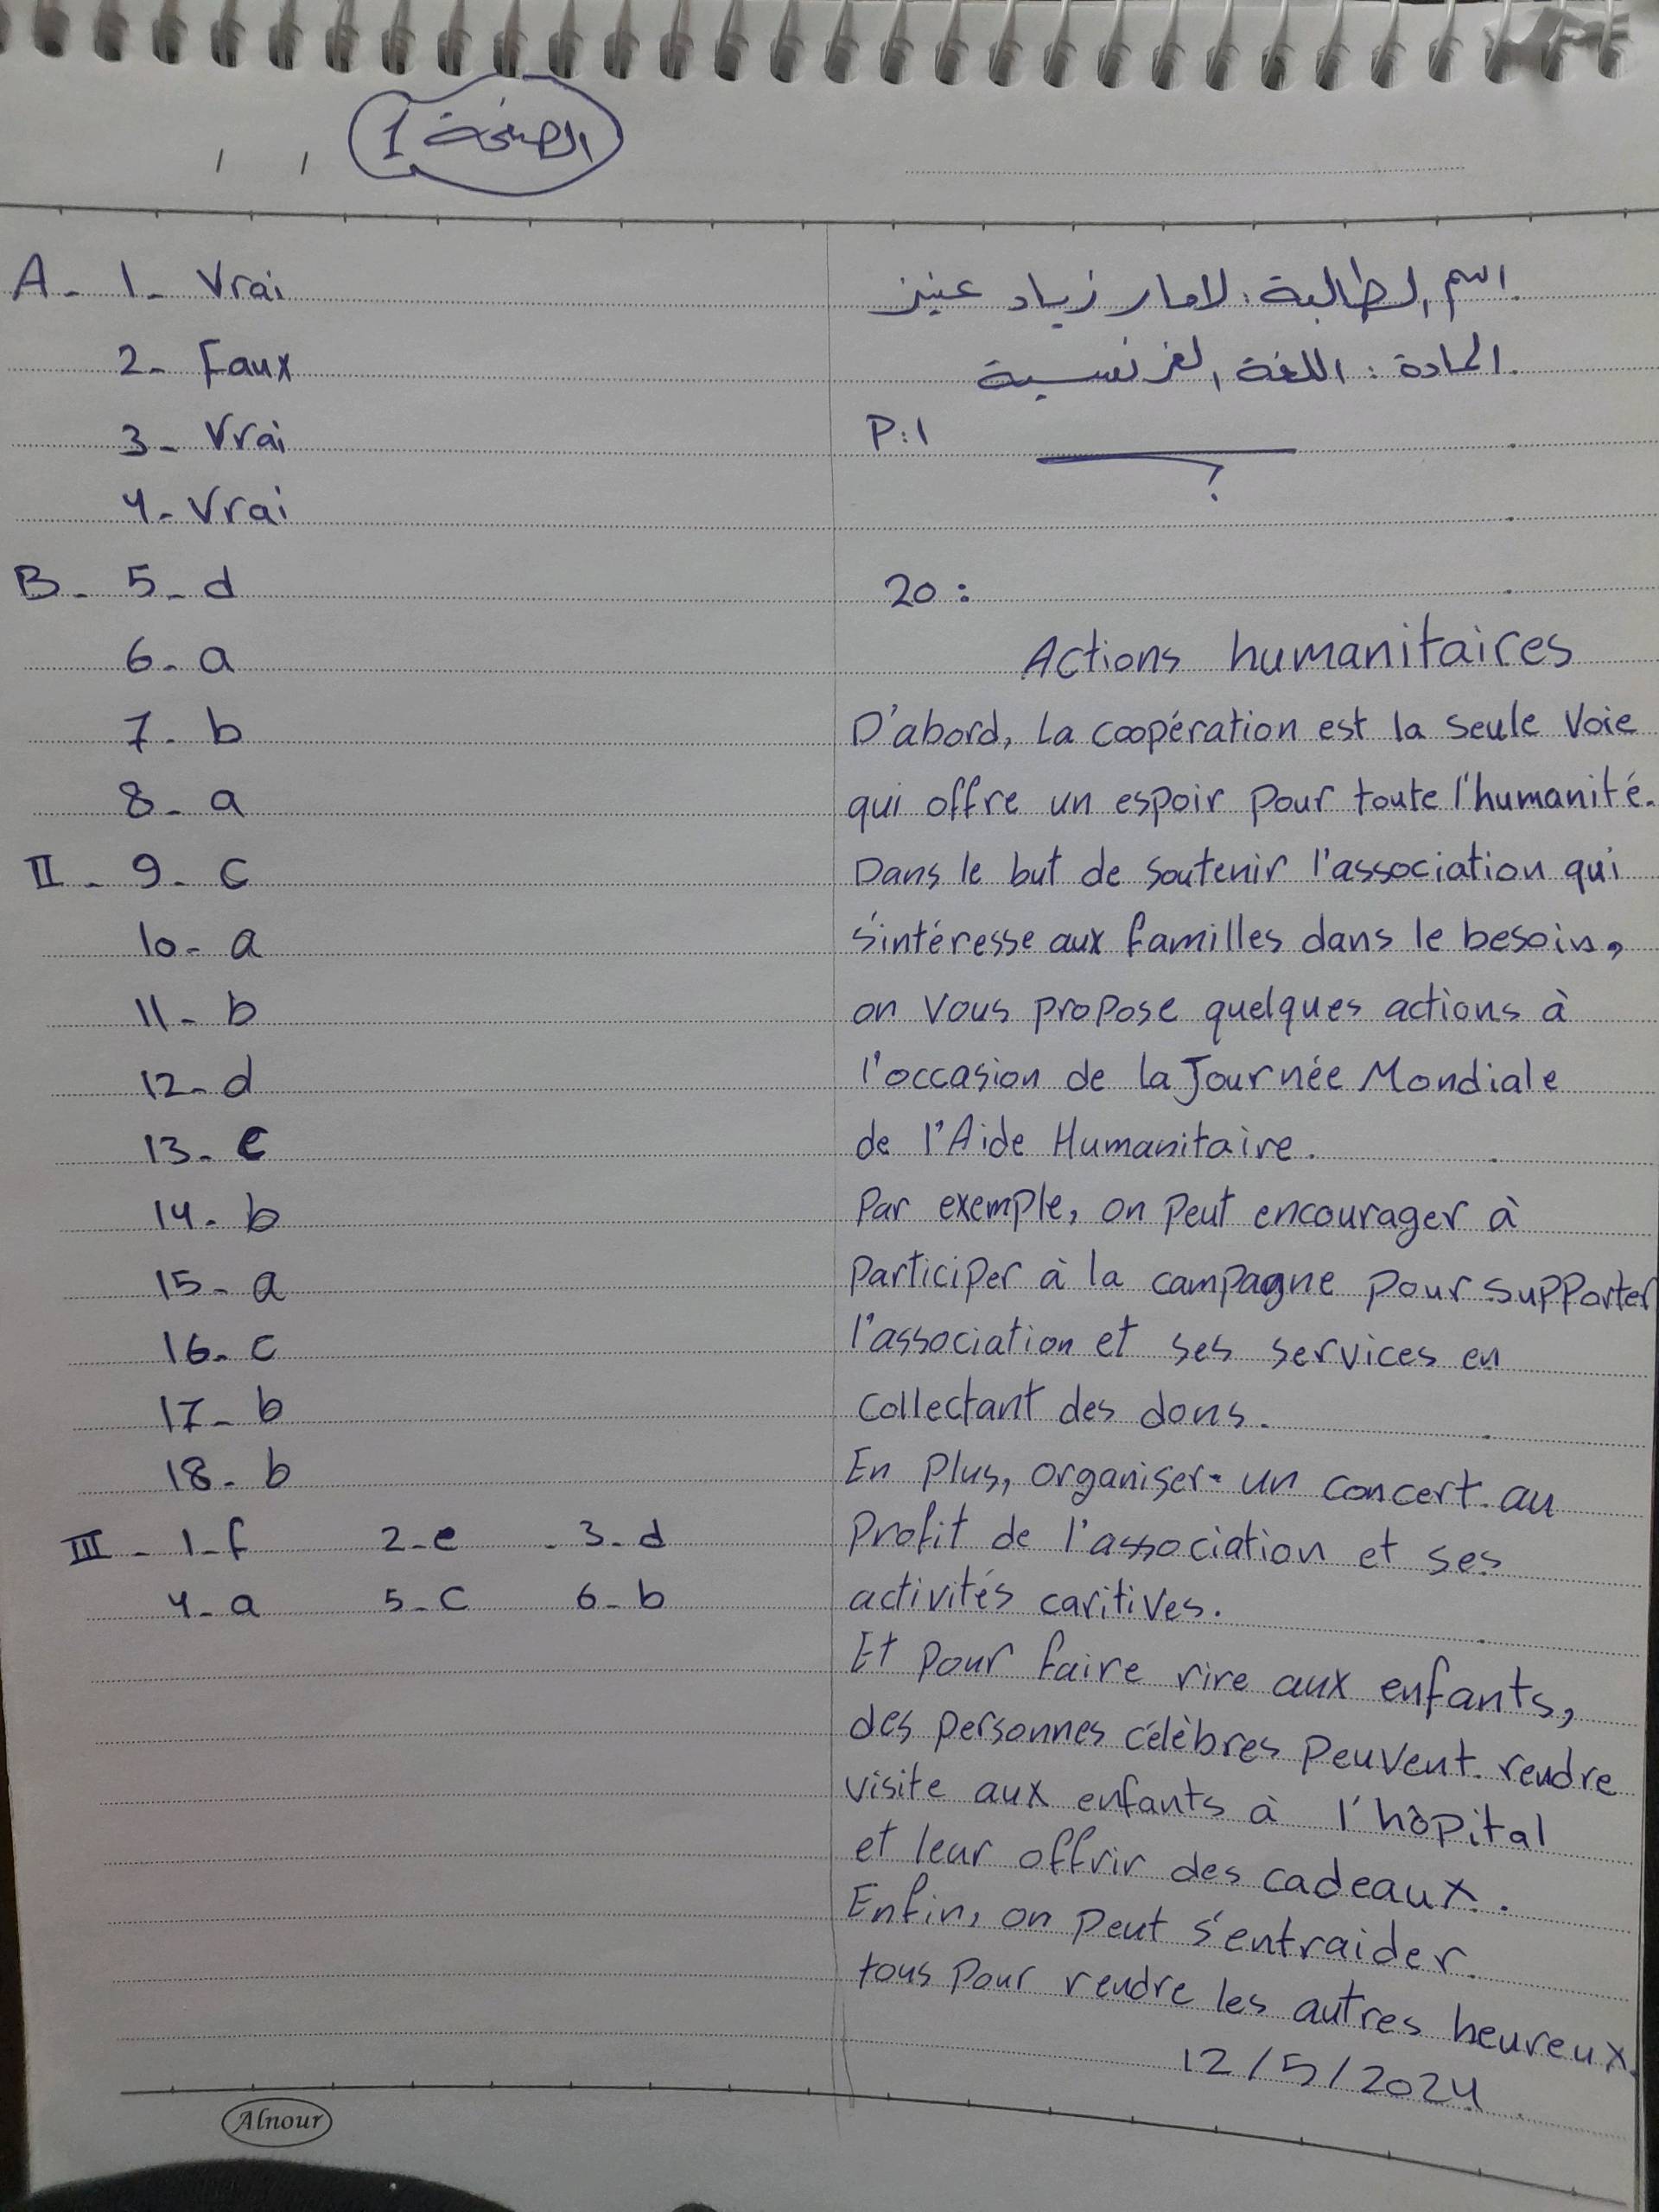 الصفحة 1
/ /
A- 1- Vrai
2- Faux
3- Vrai
4- Vrai
B- 5- d
6- a
7- b
8- a
II- 9- c
10- a
11- b
12- d
13- c
14- b
15- a
16- c
17- b
18- b
III- 1-f 2-e - 3-d
4-a 5-c 6-b
اسم الطالبة: لامار زياد عنيز
المادة: اللغة الفرنسية
P:1
20:
Actions humanitaires
D'abord, La coopération est la seule voie
qui offre un espoir pour toute l'humanité.
Dans le but de soutenir l'association qui
s'intéresse aux familles dans le besoin,
on vous propose quelques actions à
l'occasion de la Journée Mondiale
de l'Aide Humanitaire.
Par exemple, on peut encourager à
participer à la campagne pour supporter
l'association et ses services en
collectant des dons.
En plus, organiser un concert au
profit de l'association et ses
activités caritives.
Et pour faire rire aux enfants,
des personnes célèbres peuvent rendre
visite aux enfants à l'hôpital
et leur offrir des cadeaux.
Enfin, on peut s'entraider
tous pour rendre les autres heureux.
12/5/2024
Alnour